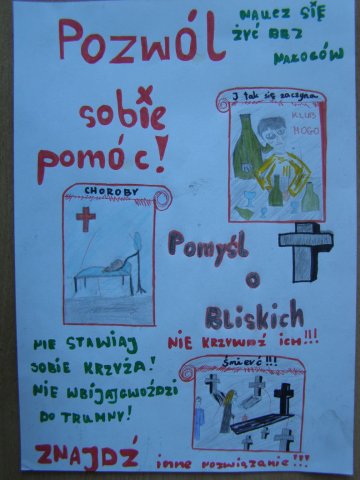 Pozwól
sobie
pomóc!
NAUCZ SIĘ
ŻYĆ BEZ
NAŁOGÓW
I tak się zaczyna
KLUB
NOGO
CHOROBY
Pomyśl
o
BLiskich
NIE KRZYWDŹ ICH!!!
NIE STAWIAJ
SOBIE KRZYŻA!
NIE WBIJAJ GWOŹDZI
DO TRUMNY!
Śmierć!!!
ZNAJDŹ inne rozwiązanie!!!